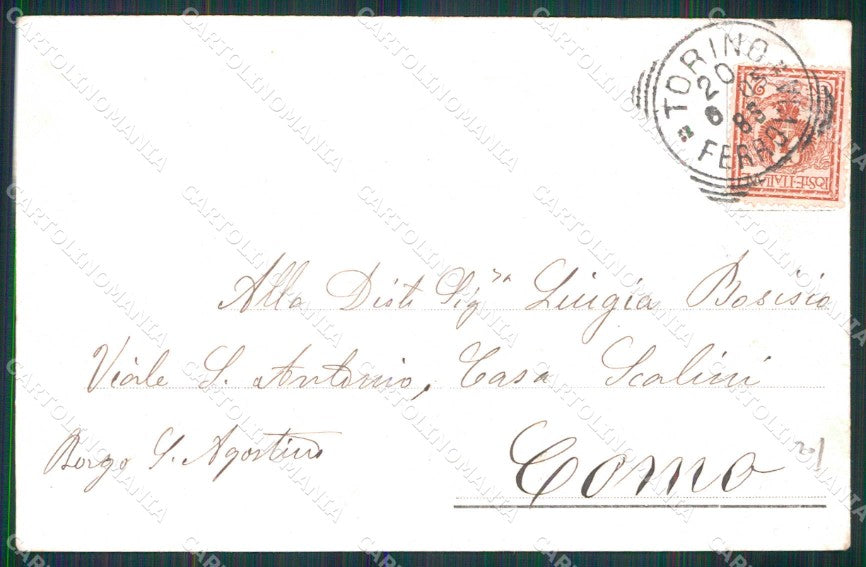 TORINO
20
6
05
8S
FERROVIA
POSTE ITALIANE
Alla Dist. Sigra Luigia Bosisio
Viale S. Antonio, Casa Scalini
Borgo S. Agostino
Como
201
CARTOLINOMANIA